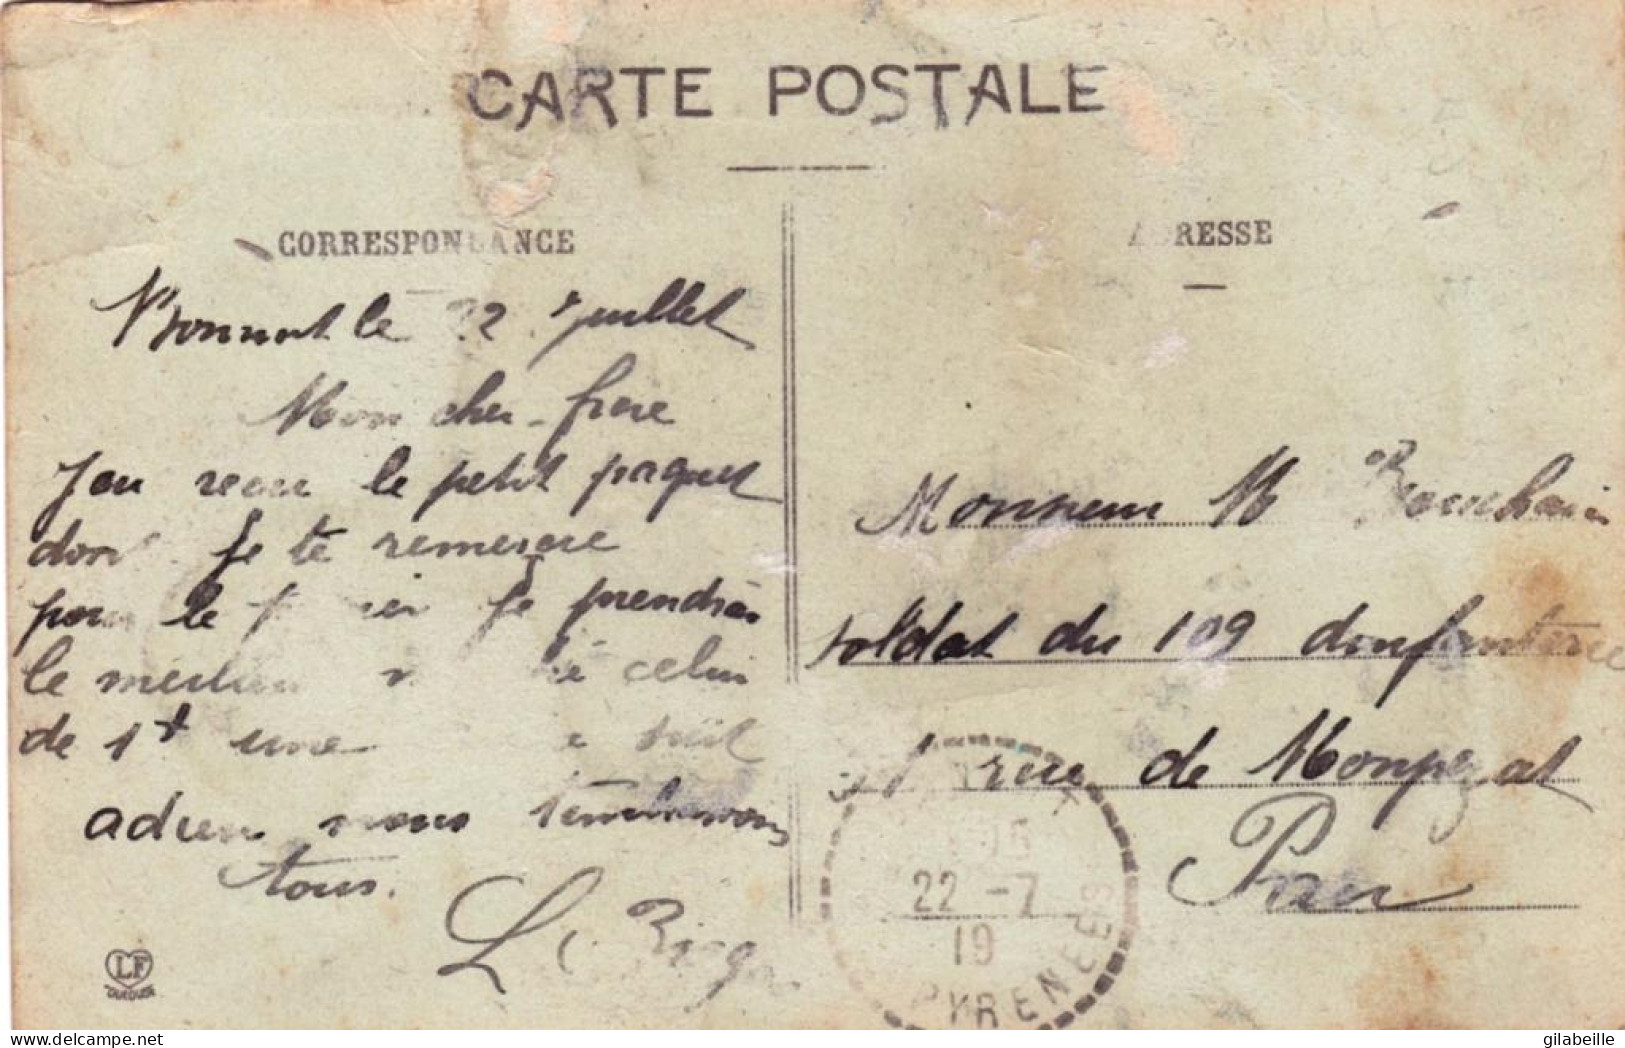 CARTE POSTALE
CORRESPONDANCE
ADRESSE
Bonnut le 22 juillet
Mon cher frere
J'ai recu le petit paquet
dont je te remercie
pour le je prendrai
le
celui
de 1+ une suit
adieu nous t'embrassons
tous.
L
Monsieur M
soldat du 109 d'infanterie
rue de Monpezat
Pau
22 -7
19
PYRENEES
LF
gilabeille